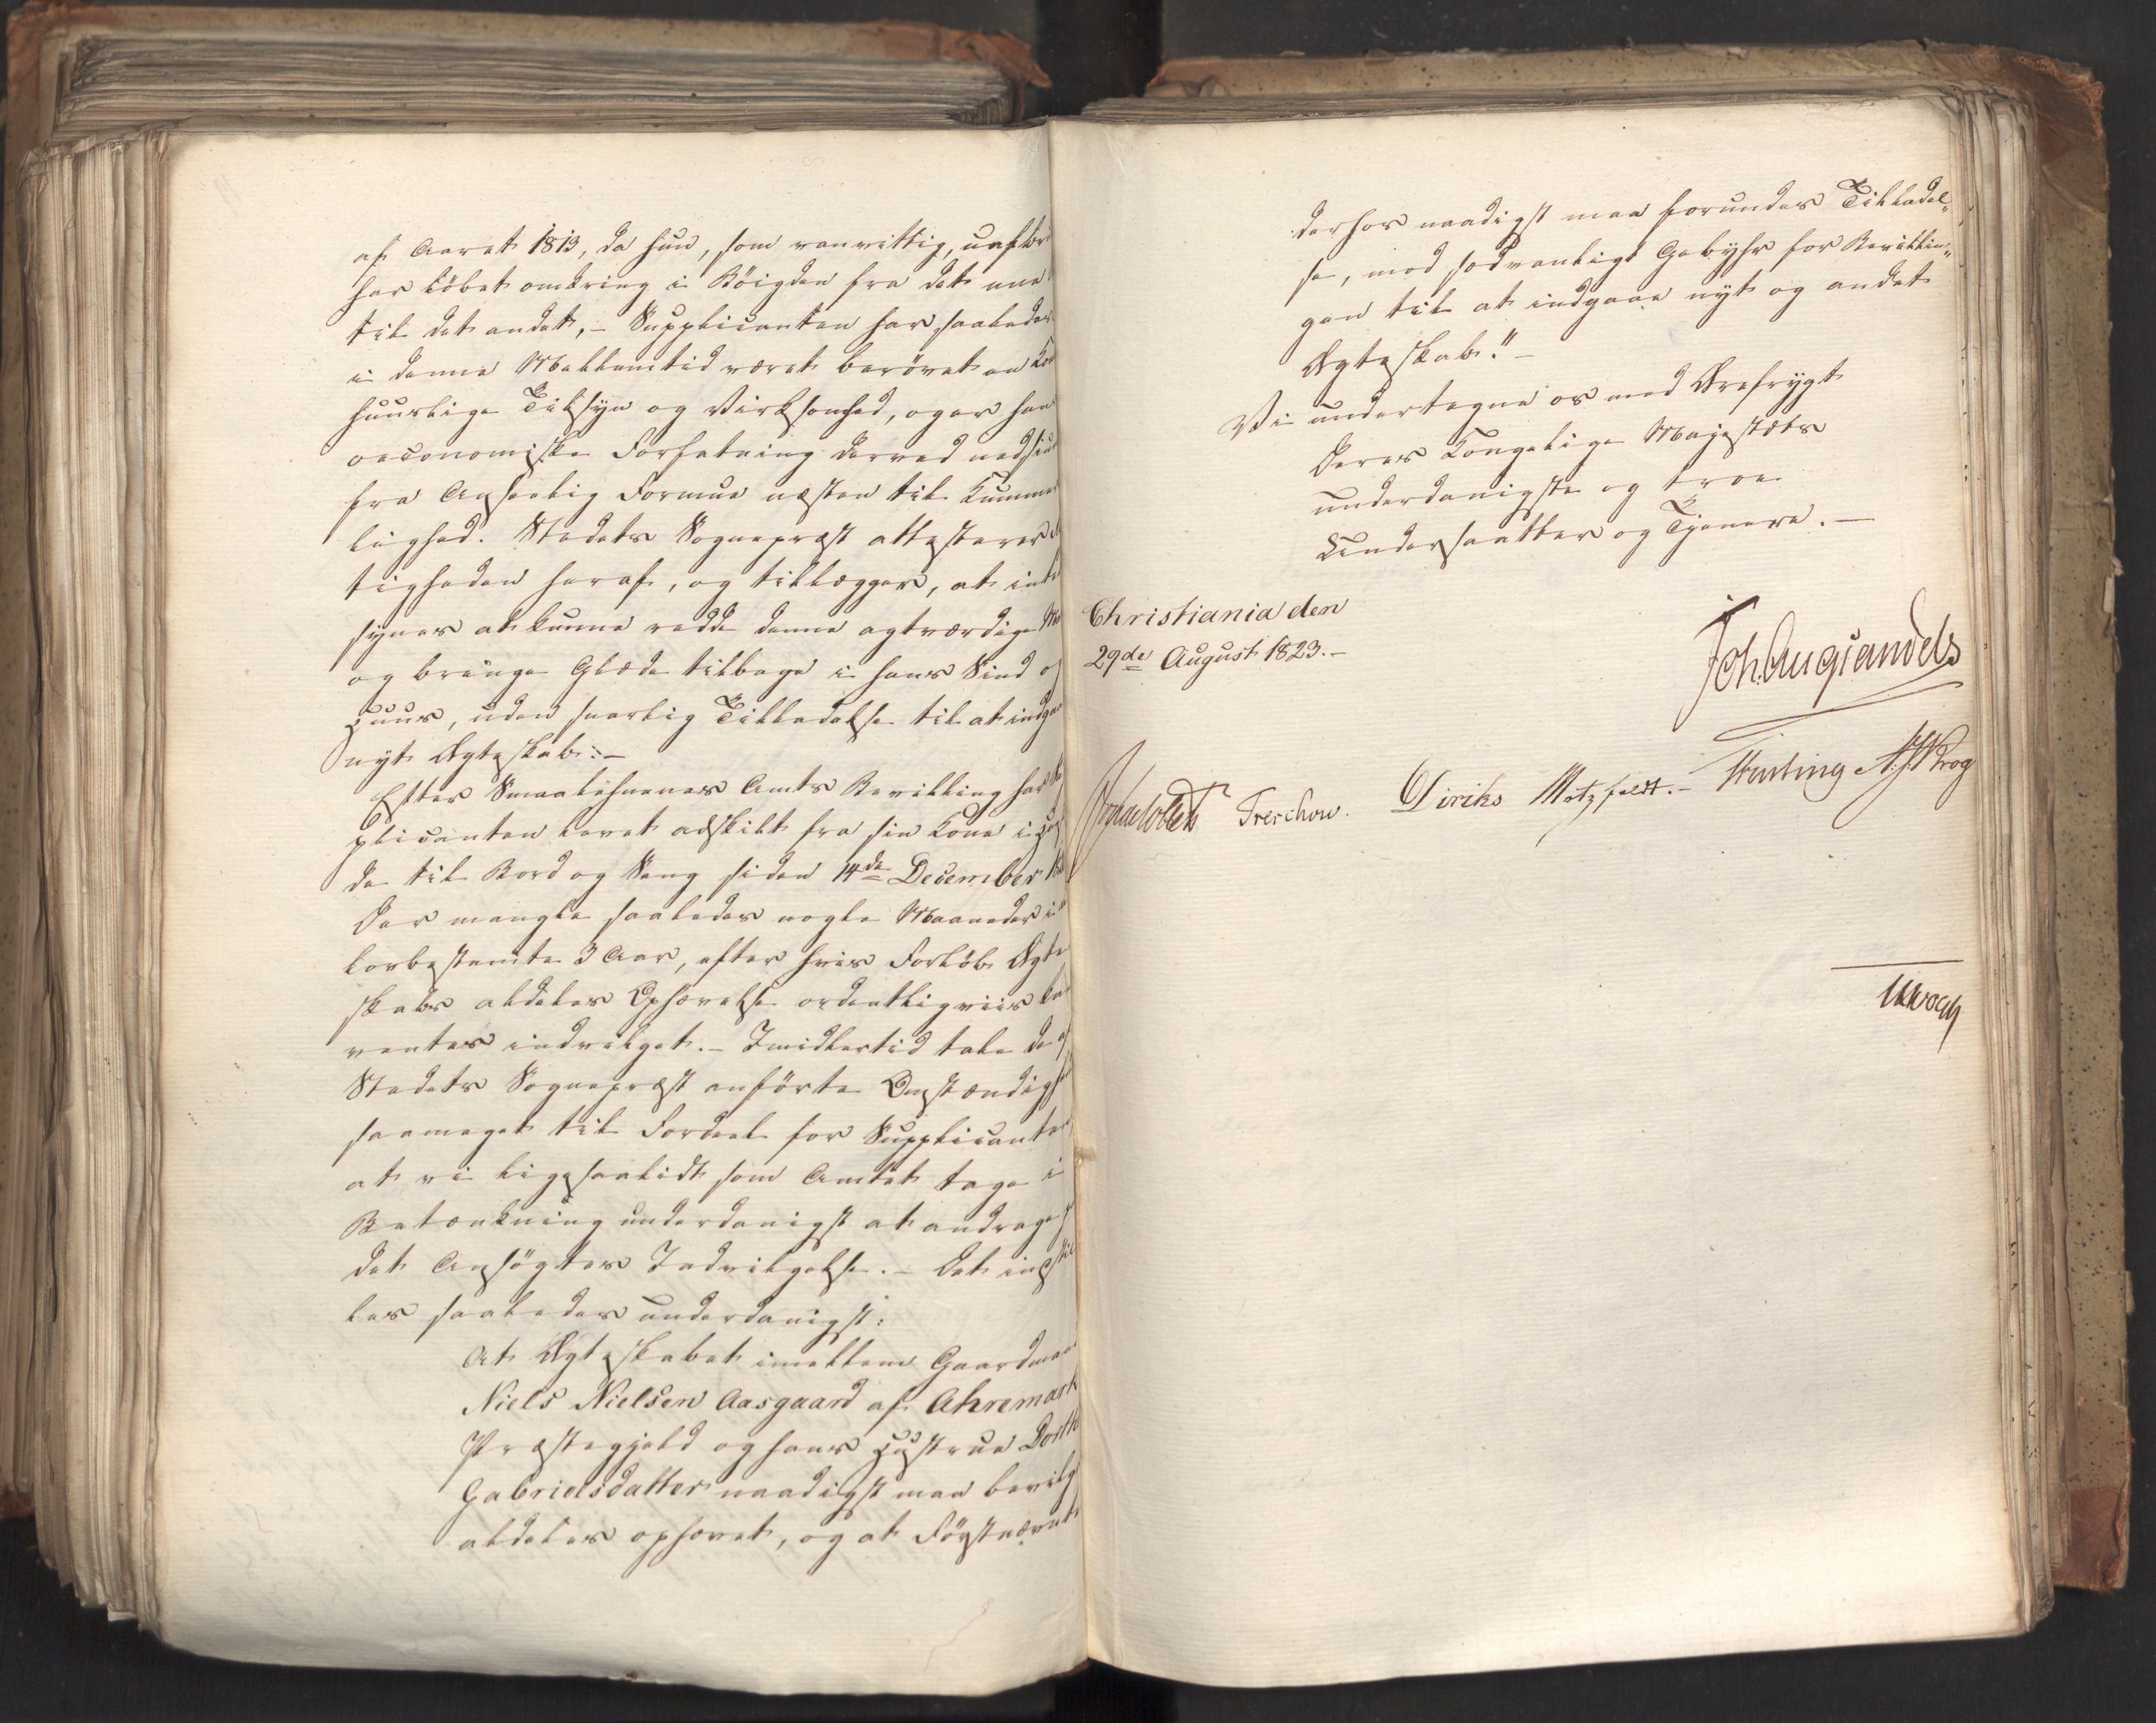 af Aaret 1813, da hun, som vanvittig, uafbr
har löbet omkring i Böigden fra det ene
til det andet, – Supplicanten har saaledes
i denne Mellemtid været berövet en Kon
huuslige Tilsyn og Virksomhed, og er hans
oeconomiske Forfatning derved nedsiun
fra Anseelig Formue næsten til Kummer
lighed. Stedets Sognepræst attesterer
tigheden heraf, og tillægger, at intet
synes at kunne redde denne agtværdige Ma
og bringe Glæde tilbage i hans Sind og
Huus, uden snarlig Tilladelse til at indgaae
nyt Ægteskab. –
Efter Smaalehnenes Amts Bevilling har
plicanten levet adskilt fra sin Kone i Hen
de til Bord og Seng siden 14de December
Der mangle saaledes nogle Maaneder i
lovbestemte 3 Aar, efter hvis Forløb Ægte
skabs aldeles Ophævelse ordentligviis kan
ventes indvilget. – Imidlertid tale de af
Stedets Sognepræst anförte Omstændighed
saameget til Fordeel for Supplicanten,
at vi ligesaalidt som Amtet tage i
Betænkning underdanigst at andrage
det Ansögtes Indvilgelse. – Det indstil
les saaledes underdanigst:
At Ægteskabet imellem Gaardmand
Niels Nielsen Aasgaard af Ahremark
Præstegjeld og hans Hustrue Dorth
Gabrielsdatter naadigst maa bevilg
aldeles ophævet, og at Förstnævnte
derhos naadigst maa forundes Tilladel„
se, mod sædvanligt Gebyhr for Bevillin„
gen til at indgaae nyt og andet
Ægteskab." –
Vi undertegne os med Ærefrygt
Deres Kongelige Majestæts
underdanigste og troe
Undersaatter og Tjenere. –
Christiania den
29de August 1823. –
Joh. Aug. Sandels
Treschow. Diriks Motzfeldt. – Krog